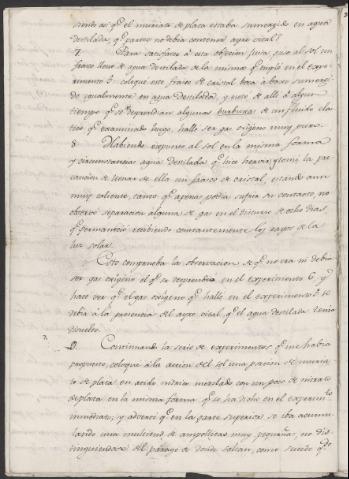 siendo asi qᵉ el muriate de plata estaba sumergido en agua
destilada, qᵉ parece no debia contener ayre vital?
7. Para satisfacer á esta objecion justa, puse al sol un
frasco lleno de agua destilada de la misma qᵉ emplé en el expe-
rimento 5. coloqué este frasco de cristal boca á baxo sumergi-
do igualmente en agua destilada, y note de alli á algun
tiempo qᵉ se desprendian algunas burbuxas de un fluido elas-
tico qᵉ examinado luego, halle ser gas oxigeno muy puro.
8. Habiendo expuesto al sol en la misma forma
y circunstancias agua destilada qᵉ hice hervir, y tomé la pre-
caucion de llenar de ella un frasco de cristal, estando aun
muy caliente, tanto qᵉ apenas podia sufrir su contacto, no
observe separacion alguna de gas en el discurso de ocho dias
qᵉ permaneció recibiendo constantemente los rayos de la
luz solar.
Esto comprueba la observacion de qᵉ no era ni debia
ser gas oxigeno el qᵉ se desprendia en el experimento 6. y
hace ver qᵉ el gas oxigeno qᵉ halle en el experimento 5. se
debia à la presencia del ayre vital qᵉ el agua destilada tenia
9. Continuando la serie de experimentos qᵉ me habia
propuesto, coloque à la accion del sol una porcion de muria-
to de plata en acido nitrico mezclado con un poco de nitrato
de plata en la misma forma qᵉ se ha dicho en el experimᵗᵒ
inmediato, y adverti qᵉ en la parte superior se iba acumu-
lando una multitud de ampollitas muy pequeñas, no dis-
tinguiendose del parage de donde salian, como sucede qᵈᵒ